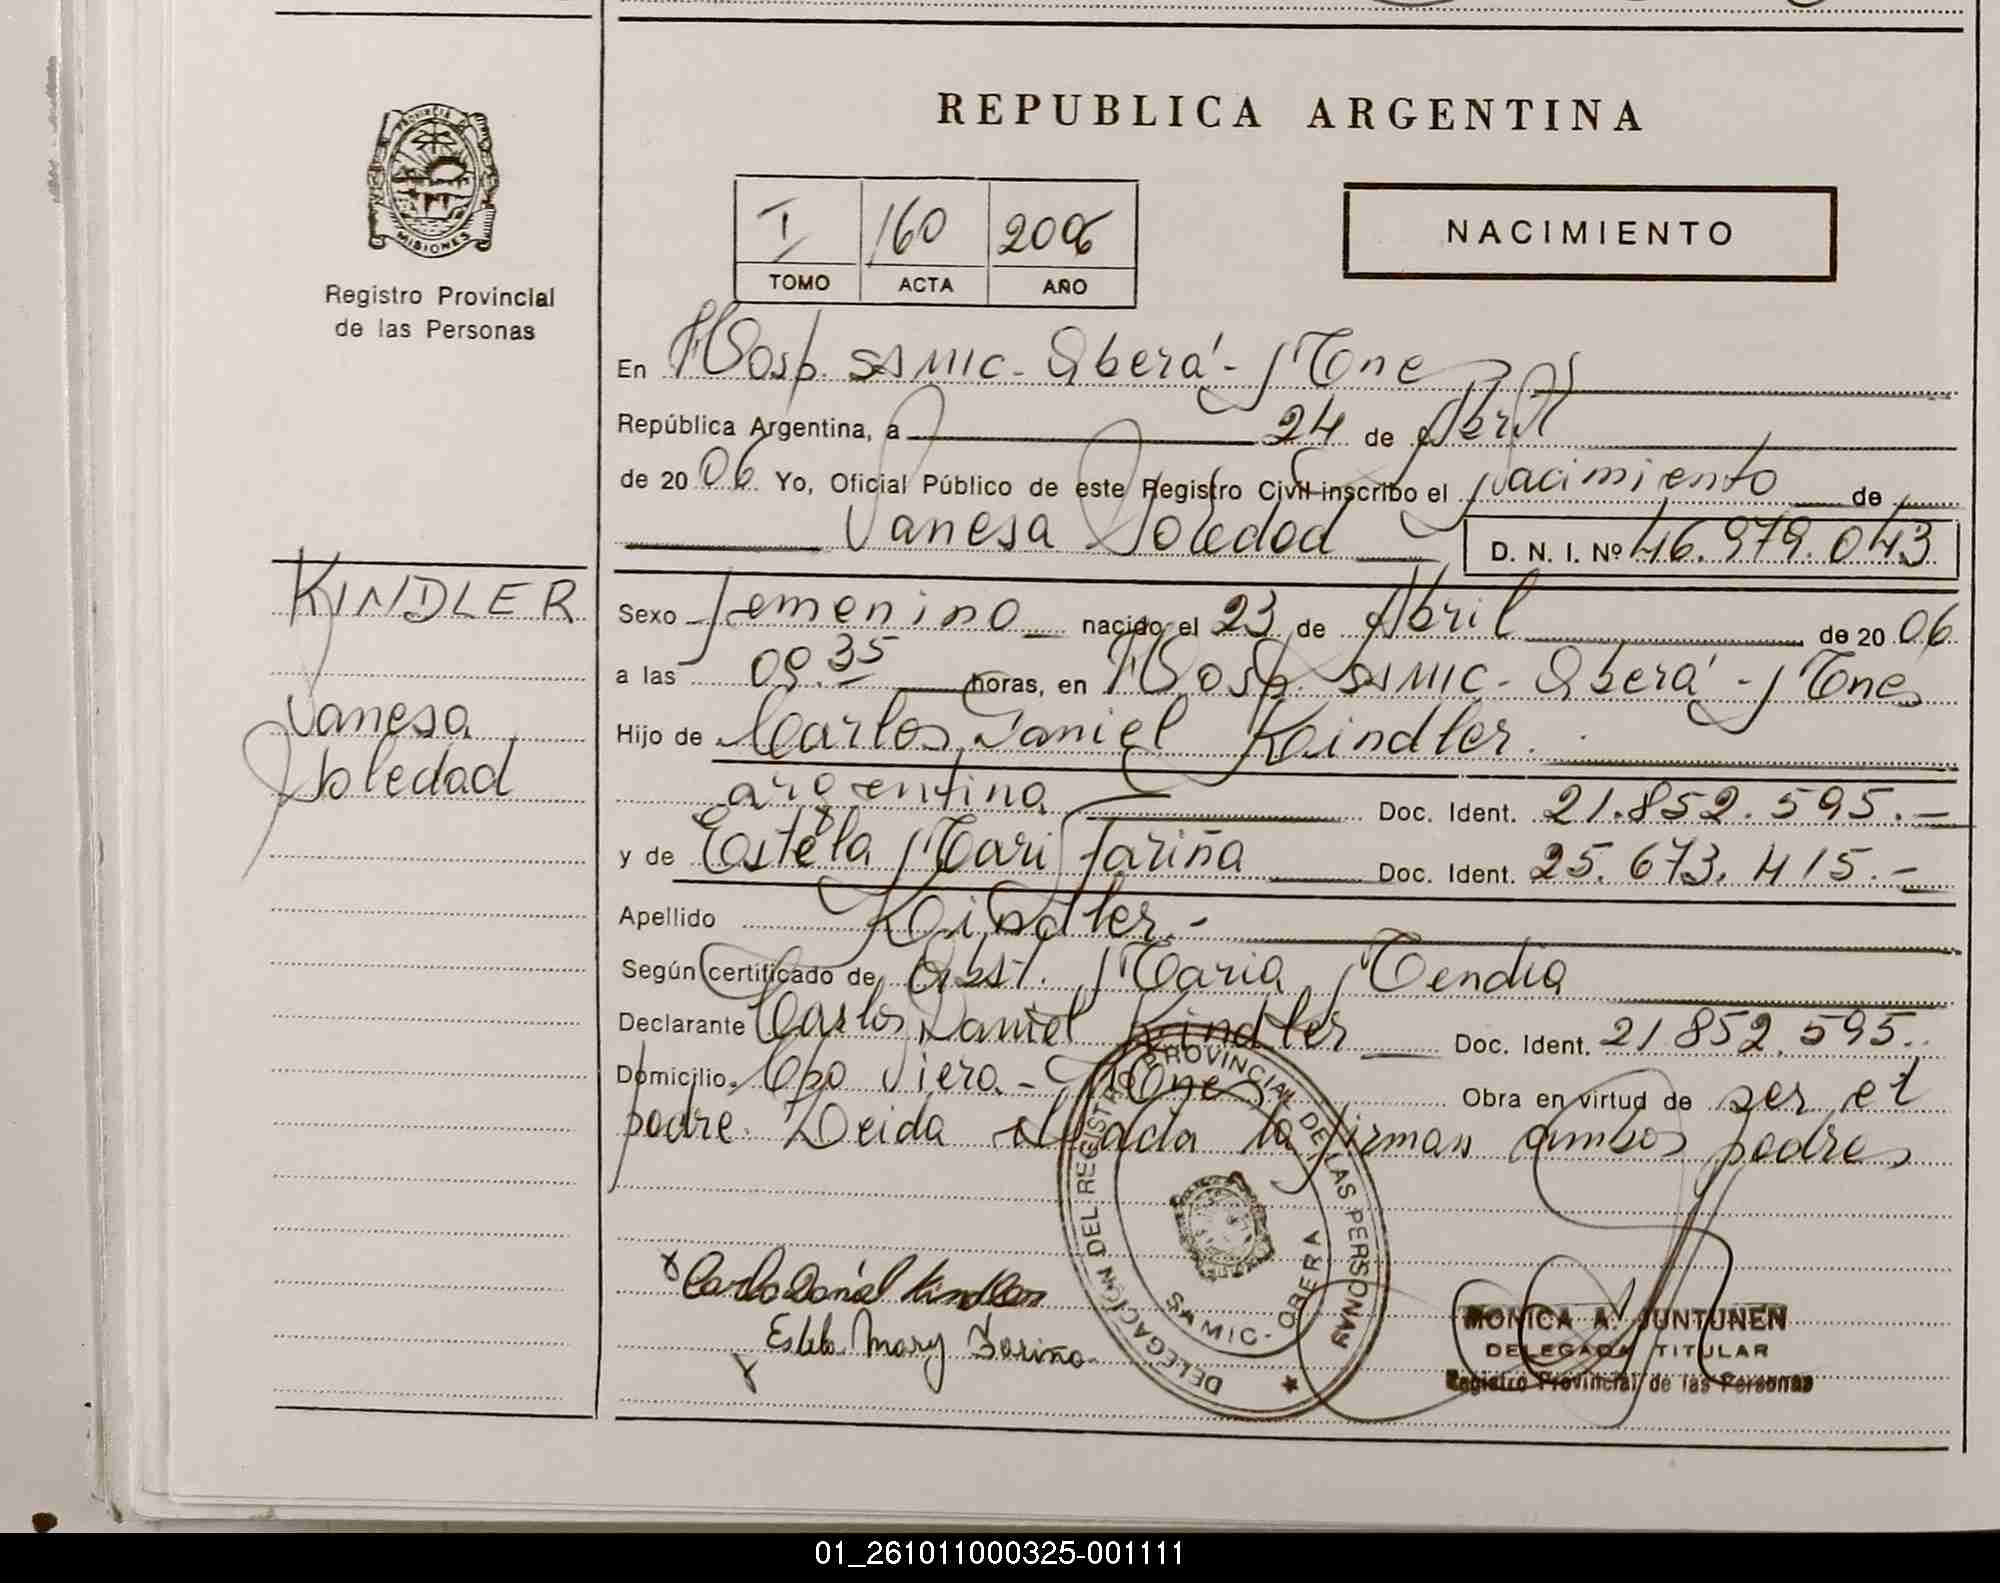 REPUBLICA ARGENTINA
PROVINCIA DE MISIONES
Registro Provincial
de las Personas
I 160 2006
TOMO ACTA AÑO
NACIMIENTO
En Hosp. SAMIC - Oberá - Mnes
República Argentina, a 24 de Abril
de 2006 Yo, Oficial Público de este Registro Civil inscribo el Nacimiento de
Vanesa Soledad D. N. I. Nº 46.979.043
KINDLER
Vanesa
Soledad
Sexo femenino nacido el 23 de Abril de 2006
a las 09.35 horas, en Hosp. SAMIC - Oberá - Mnes
Hijo de Carlos Daniel Kindler.
argentina Doc. Ident. 21.852.595.-
y de Estela Mari Fariña Doc. Ident. 25.673.415.-
Apellido Kindler.-
Según certificado de Obst. Maria Mendia
Declarante Carlos Daniel Kindler Doc. Ident. 21 852.595..
Domicilio Cpo Viera - Mnes Obra en virtud de ser el
padre. Leida el acta la firman ambos padres
DELEGACION DEL REGISTRO PROVINCIAL DE LAS PERSONAS
SAMIC - OBERA
x Carlos Daniel Kindler
x Estela Mary Fariña
MONICA A. JUNTUNEN
DELEGADA TITULAR
Registro Provincial de las Personas
01_261011000325-001111